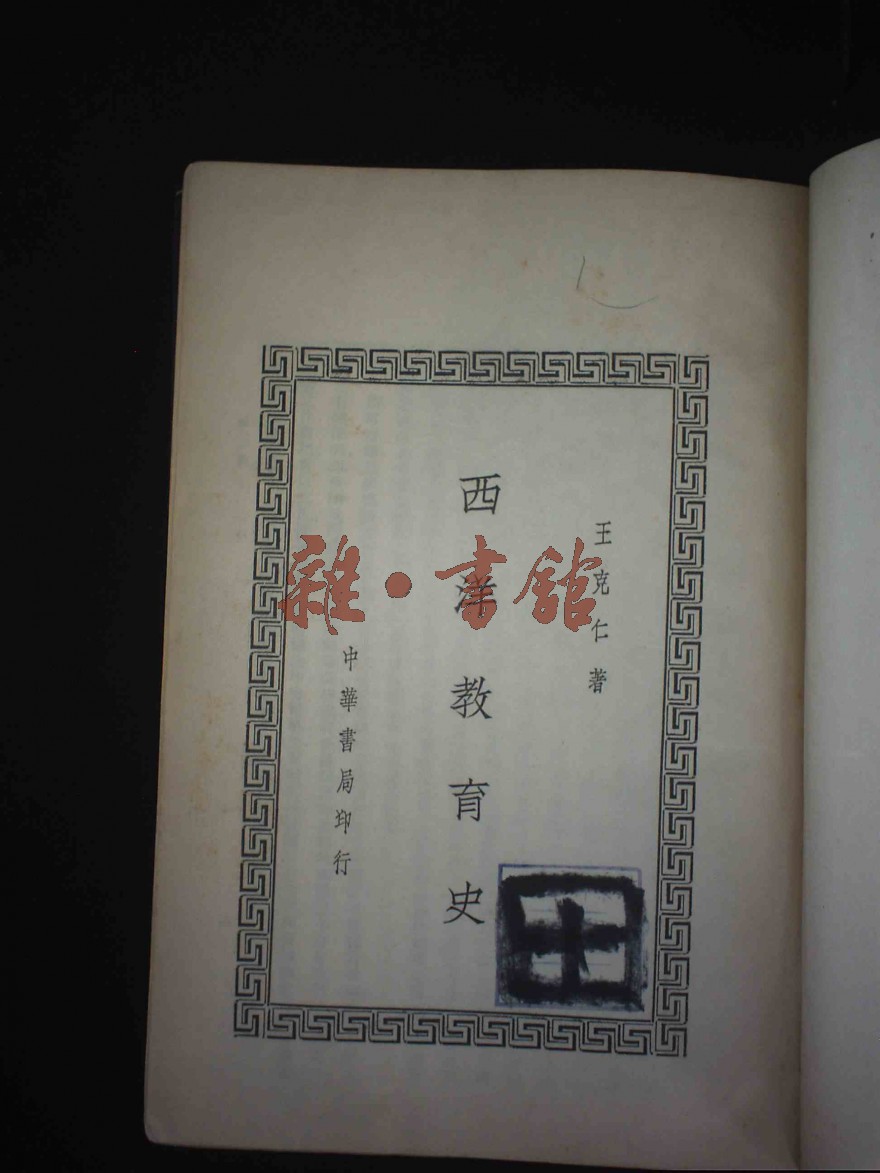 王克仁著
西洋教育史
中華書局印行
雜·書館